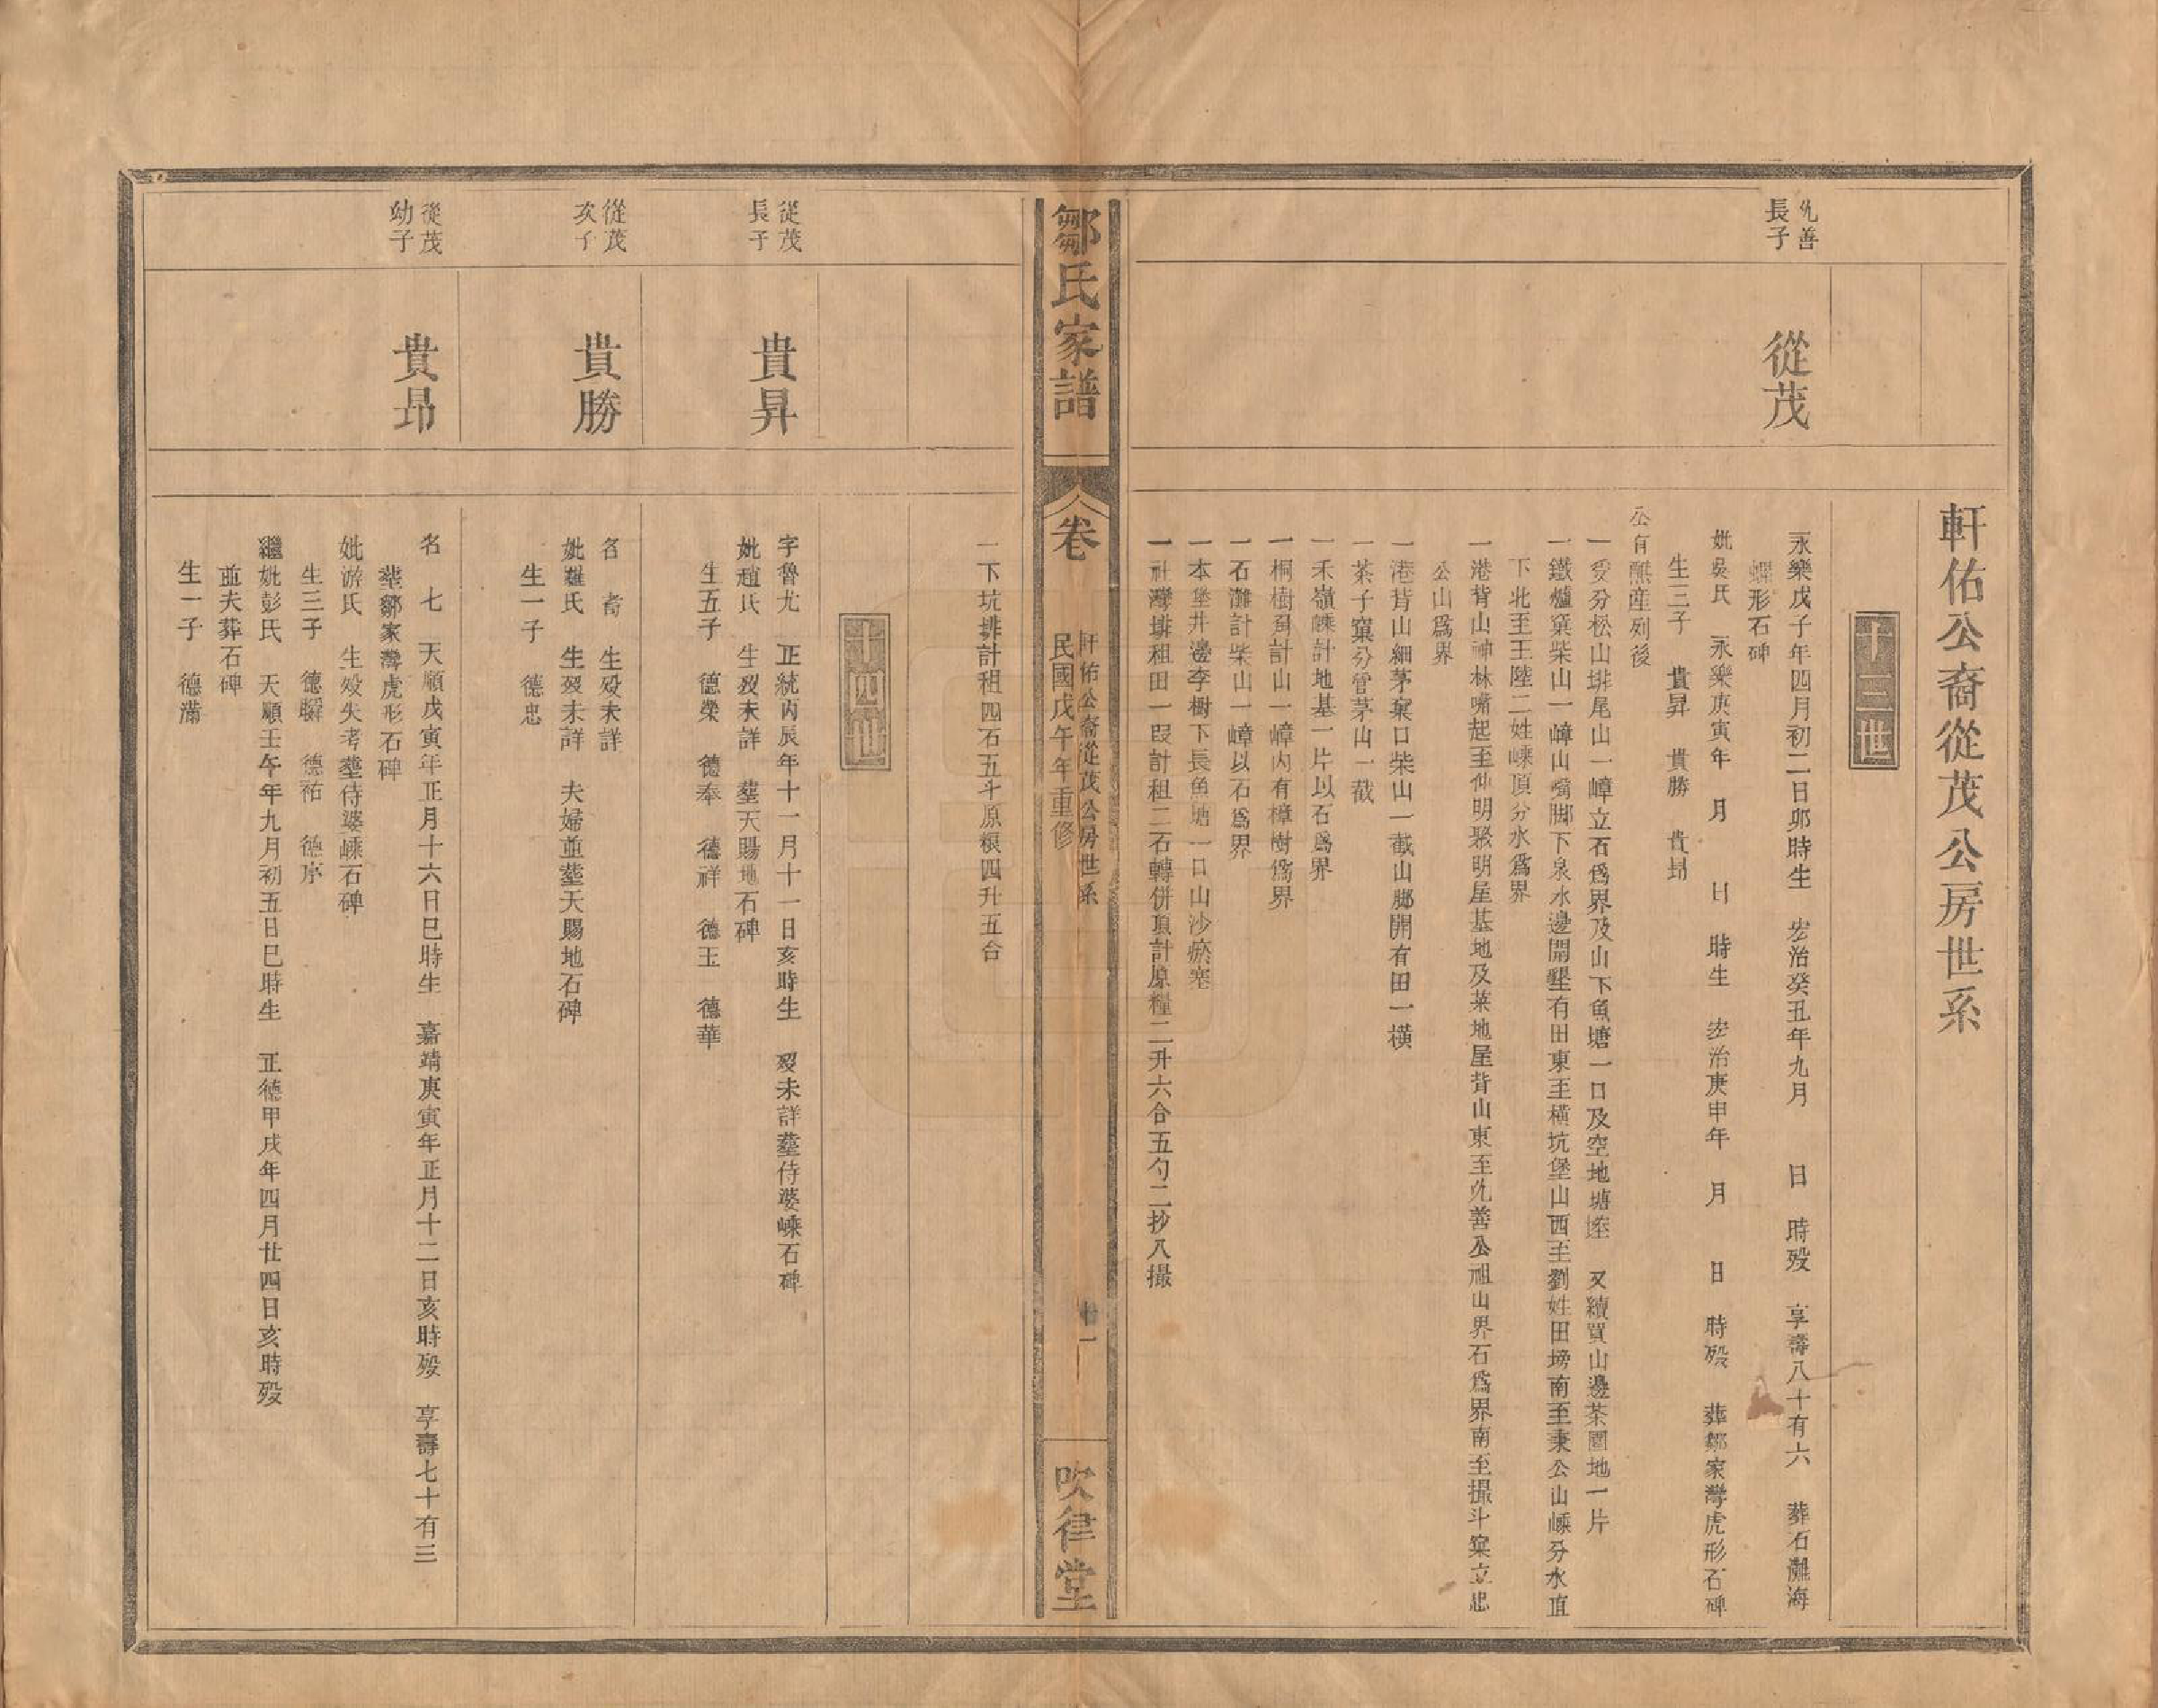 軒佑公裔從茂公房世系
十三世
允善
長子
從茂
永樂戊子年四月初二日卯時生　宏治癸丑年九月　日　時歿　享壽八十有六　葬石灘海
螺形石碑
妣吳氏　永樂庚寅年　月　日　時生　宏治庚申年　月　日　時歿　葬鄒家灣虎形石碑
生三子　貴昇　貴勝　貴昻
公有醮産列後
一受分松山排尾山一嶂立石爲界及山下魚塘一口及空地塘塍　又續買山邊茶園地一片
一鐵爐窠柴山一嶂山嘴脚下泉水邊開墾有田東至橫坑堡山西至劉姓田塝南至秉公山嵊分水直
下北至王陸二姓嵊頂分水爲界
一港背山神林嘴起至仲明聚明屋基地及菜地屋背山東至允善公祖山界石爲界南至撮斗窠立忠
公山爲界
一港背山細茅窠口柴山一截山脚開有田一橫
一茶子窠分管茅山一截
一禾嶺嵊計地基一片以石爲界
一桐樹窩計山一嶂內有樟樹爲界
一石灘計柴山一嶂以石爲界
一本堡井邊李樹下長魚塘一口山沙瘀塞
一社灣排租田一叚計租二石轉併頂計原糧二升六合五勺二抄八撮
鄒氏家譜
卷
軒佑公裔從茂公房世系
民國戊午年重修
一
吹律堂
一下坑排計租四石五斗原粮四升五合
十四世
從茂
長子
貴昇
字魯尤　正統丙辰年十一月十一日亥時生　歿未詳塟侍婆嵊石碑
妣趙氏　生歿未詳　塟天賜地石碑
生五子　德榮　德奉　德祥　德玉　德華
從茂
次子
貴勝
名　裔　生歿未詳
妣羅氏　生歿未詳　夫婦並塟天賜地石碑
生一子　德忠
從茂
幼子
貴昻
名　七　天順戊寅年正月十六日巳時生　嘉靖庚寅年正月十二日亥時歿　享壽七十有三
塟鄒家灣虎形石碑
妣游氏　生歿失考塟侍婆嵊石碑
生三子　德麟　德祐　德序
繼妣彭氏　天順壬午年九月初五日巳時生　正德甲戌年四月廿四日亥時歿
並夫葬石碑
生一子　德滿